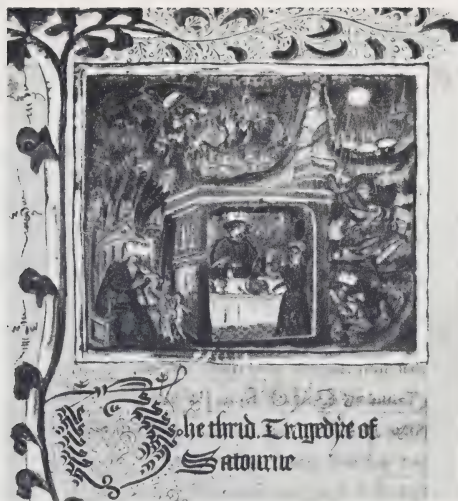 The thrid. Tragedÿe of
Satourne